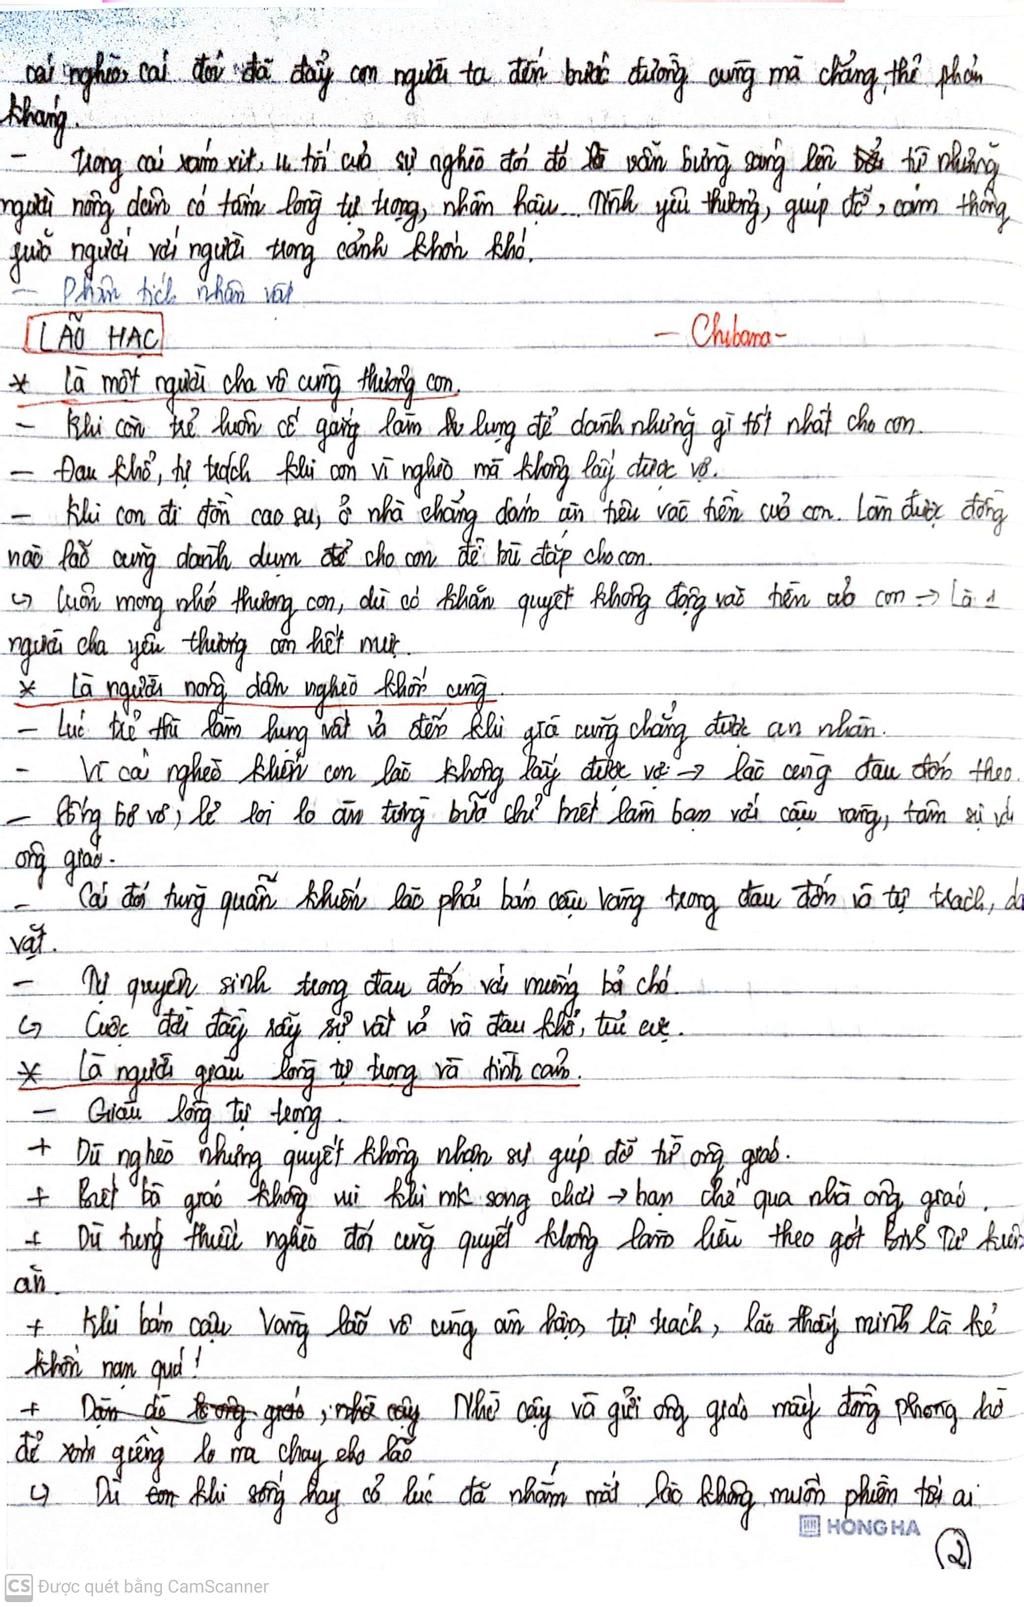 cái nghèo, cái đói đã đẩy con người ta đến bước đường cùng mà chẳng thể phản
kháng.
- Trong cái xám xịt, u tối của sự nghèo đói đó vẫn bừng sáng lên từ những
người nông dân có tấm lòng tự trọng, nhân hậu... Tình yêu thương, giúp đỡ, cảm thông
giữa người với người trong cảnh khốn khó.
- Phân tích nhân vật
LÃO HẠC - Chibana -
* Là một người cha vô cùng thương con.
- Khi còn trẻ luôn cố gắng làm lụng để dành những gì tốt nhất cho con.
- Đau khổ, tự trách khi con vì nghèo mà không lấy được vợ.
- Khi con đi đồn cao su, ở nhà chẳng dám ăn tiêu vào tiền của con. Làm được đồng
nào lão cũng dành dụm cho con để bù đắp cho con.
↪ Luôn mong nhớ thương con, dù có khăn quyết không động vào tiền của con → Là 1
người cha yêu thương con hết mực.
* Là người nông dân nghèo khốn cùng.
- Lúc trẻ thì làm lụng vất vả đến khi già cũng chẳng được an nhàn.
- Vì cái nghèo khiến con lão không lấy được vợ → lão cũng đau đớn theo.
- Sống bơ vơ, lẻ loi lo ăn từng bữa chỉ biết làm bạn với cậu vàng, tâm sự với
ông giáo.
- Cái đói túng quẫn khiến lão phải bán cậu Vàng trong đau đớn và tự trách, dằn
vặt.
- Tự quyên sinh trong đau đớn với miếng bả chó.
↪ Cuộc đời đầy rẫy sự vất vả và đau khổ, tủi cực.
* Là người giàu lòng tự trọng và tình cảm.
- Giàu lòng tự trọng.
+ Dù nghèo nhưng quyết không nhận sự giúp đỡ từ ông giáo.
+ Biết bà giáo không vui khi mk sang chơi → hạn chế qua nhà ông giáo.
+ Dù túng thiếu nghèo đói cũng quyết không làm liều theo gót Binh Tư kiếm
ăn.
+ Khi bán cậu Vàng lão vô cùng ân hận, tự trách, lão thấy mình là kẻ
khốn nạn quá!
+ Nhờ cậy và gửi ông giáo mấy đồng phòng hờ
để xóm giềng lo ma chay cho lão
↪ Dù khi sống hay cả lúc đã nhắm mắt lão không muốn phiền tới ai
HONG HA
2
CS Được quét bằng CamScanner